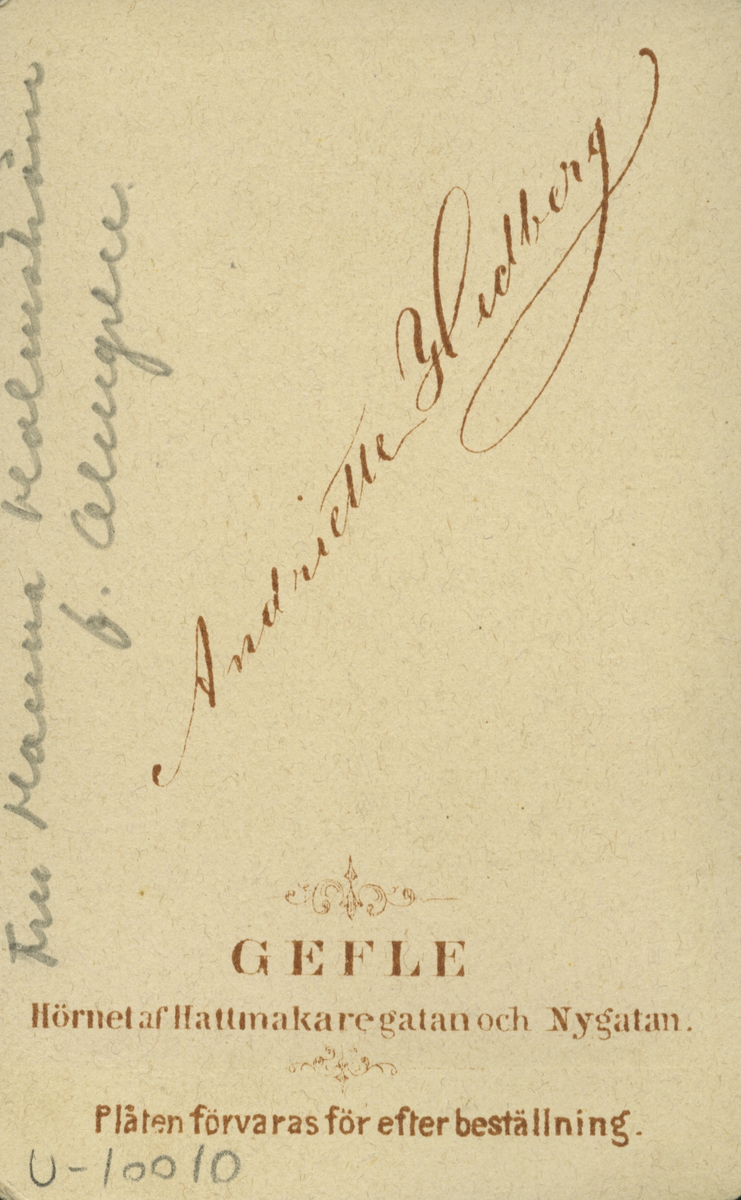 Fru Hanna Holmström
f. Almgren.
Andriette Hedberg
GEFLE
Hörnet af Hattmakaregatan och Nygatan.
Plåten förvaras för efterbeställning.
U-10010